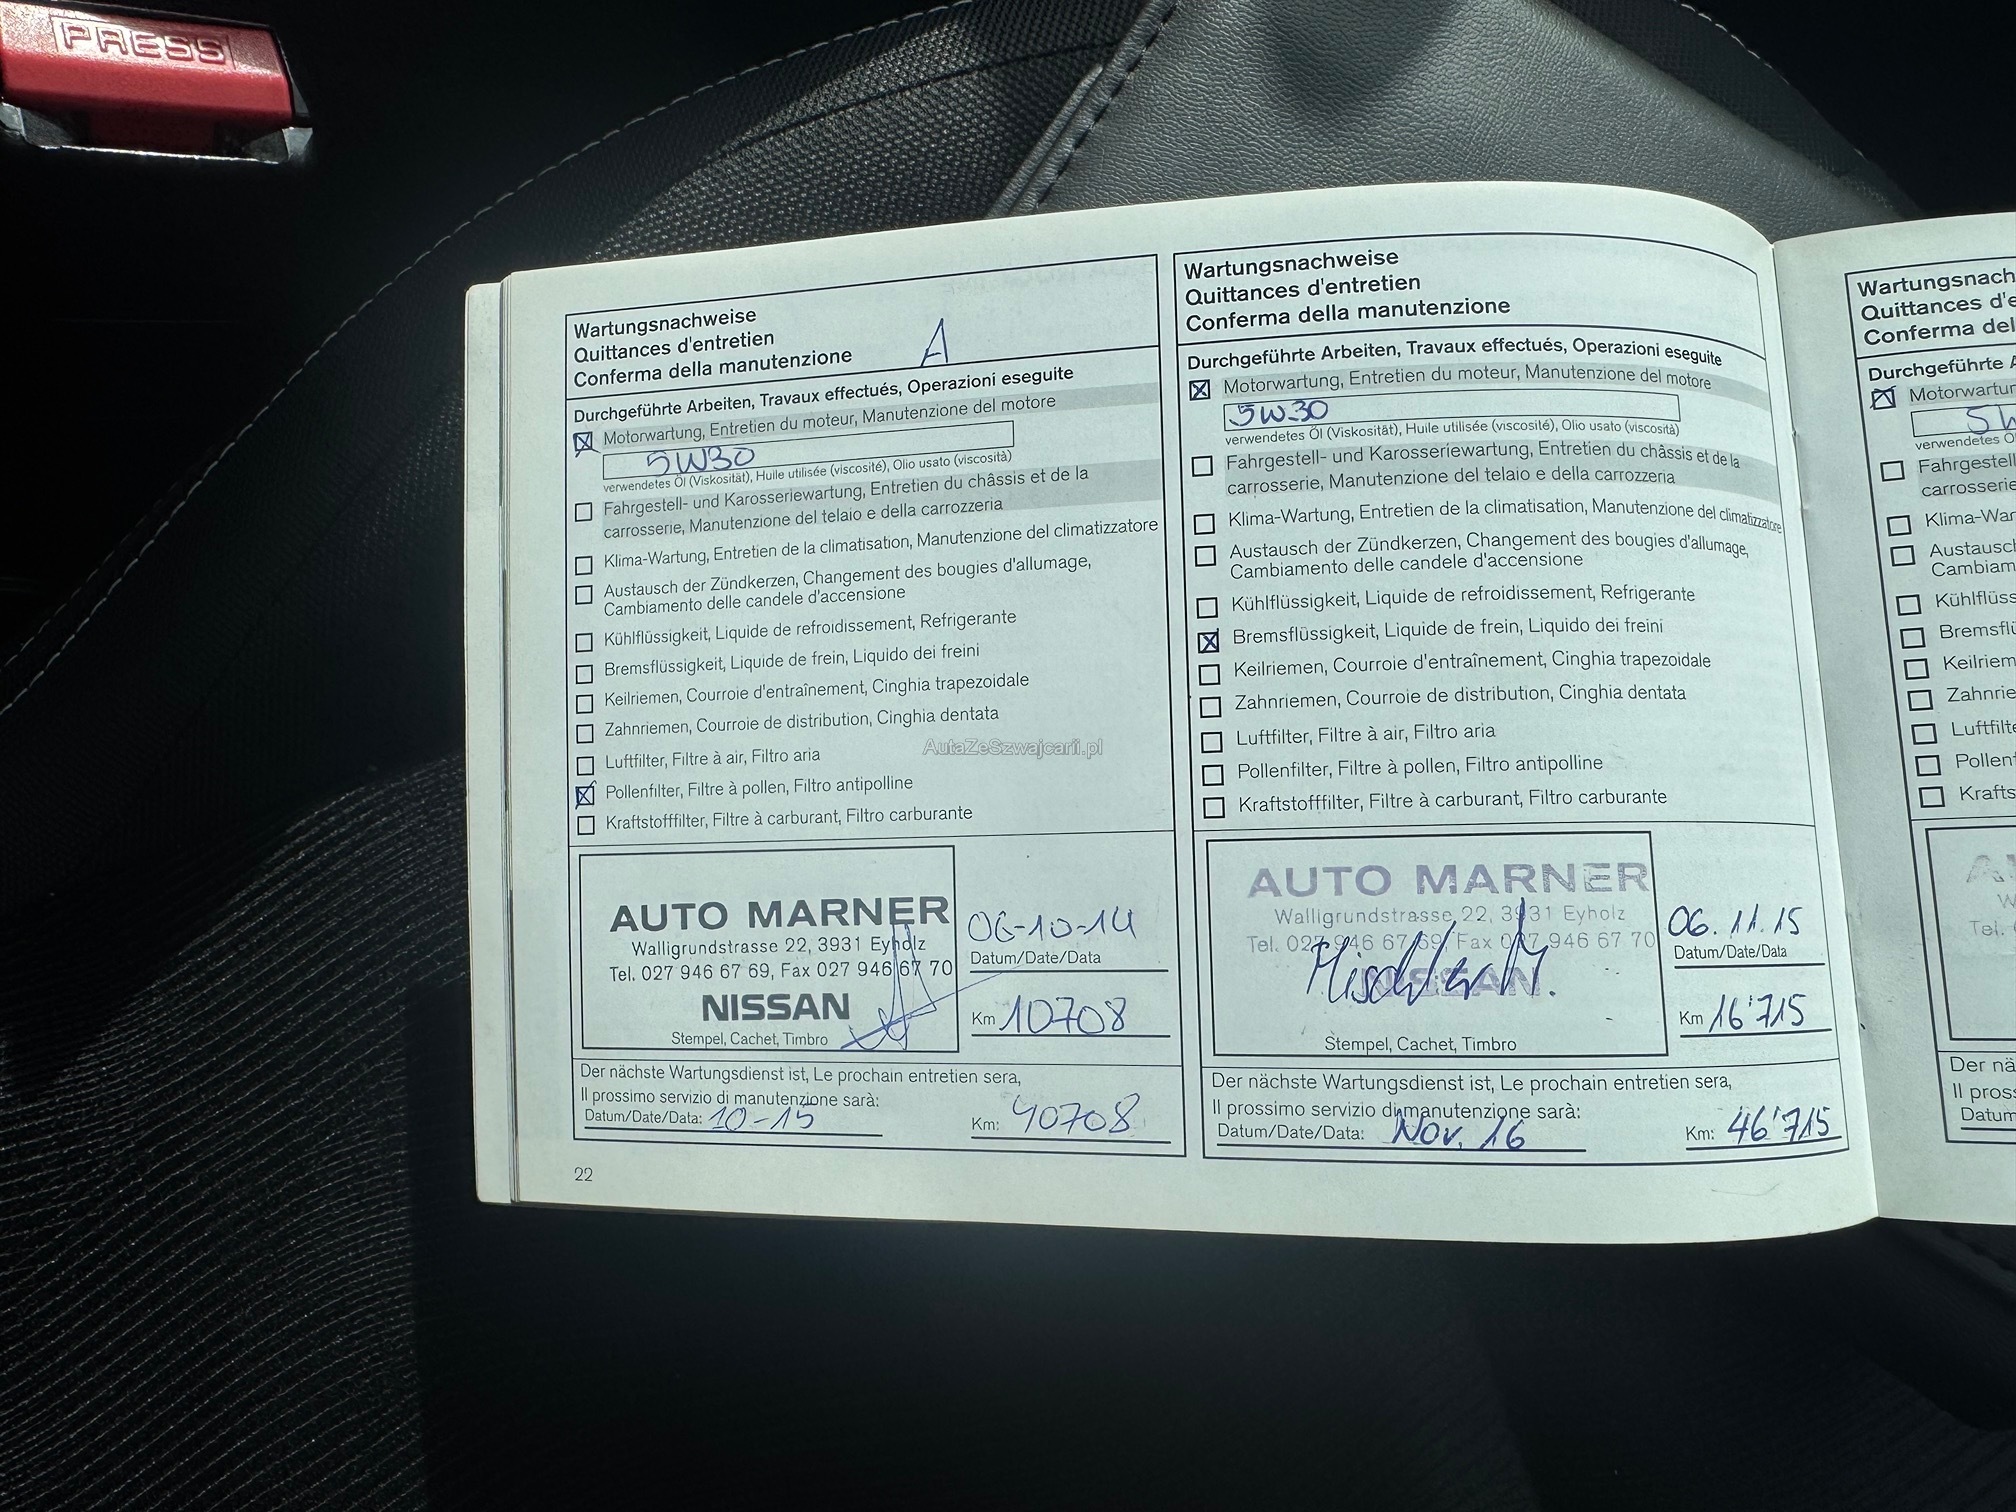 PRESS
Wartungsnachweise
Quittances d'entretien
Conferma della manutenzione
A
Durchgeführte Arbeiten, Travaux effectués, Operazioni eseguite
Motorwartung, Entretien du moteur, Manutenzione del motore
5W30
verwendetes Öl (Viskosität), Huile utilisée (viscosité), Olio usato (viscosità)
Fahrgestell- und Karosseriewartung, Entretien du châssis et de la
carrosserie, Manutenzione del telaio e della carrozzeria
Klima-Wartung, Entretien de la climatisation, Manutenzione del climatizzatore
Austausch der Zündkerzen, Changement des bougies d'allumage,
Cambiamento delle candele d'accensione
Kühlflüssigkeit, Liquide de refroidissement, Refrigerante
Bremsflüssigkeit, Liquide de frein, Liquido dei freini
Keilriemen, Courroie d'entraînement, Cinghia trapezoidale
Zahnriemen, Courroie de distribution, Cinghia dentata
Luftfilter, Filtre à air, Filtro aria
Pollenfilter, Filtre à pollen, Filtro antipolline
Kraftstofffilter, Filtre à carburant, Filtro carburante
AUTO MARNER
Walligrundstrasse 22, 3931 Eyholz
Tel. 027 946 67 69, Fax 027 946 67 70
NISSAN
Stempel, Cachet, Timbro
06-10-14
Datum/Date/Data
Km 10708
Der nächste Wartungsdienst ist, Le prochain entretien sera,
Il prossimo servizio di manutenzione sarà:
Datum/Date/Data: 10-15
Km: 40708
22
Wartungsnachweise
Quittances d'entretien
Conferma della manutenzione
Durchgeführte Arbeiten, Travaux effectués, Operazioni eseguite
Motorwartung, Entretien du moteur, Manutenzione del motore
5W30
verwendetes Öl (Viskosität), Huile utilisée (viscosité), Olio usato (viscosità)
Fahrgestell- und Karosseriewartung, Entretien du châssis et de la
carrosserie, Manutenzione del telaio e della carrozzeria
Klima-Wartung, Entretien de la climatisation, Manutenzione del climatizzatore
Austausch der Zündkerzen, Changement des bougies d'allumage,
Cambiamento delle candele d'accensione
Kühlflüssigkeit, Liquide de refroidissement, Refrigerante
Bremsflüssigkeit, Liquide de frein, Liquido dei freini
Keilriemen, Courroie d'entraînement, Cinghia trapezoidale
Zahnriemen, Courroie de distribution, Cinghia dentata
Luftfilter, Filtre à air, Filtro aria
Pollenfilter, Filtre à pollen, Filtro antipolline
Kraftstofffilter, Filtre à carburant, Filtro carburante
AUTO MARNER
Walligrundstrasse 22, 3931 Eyholz
Tel. 027 946 67 69, Fax 027 946 67 70
NISSAN
Stempel, Cachet, Timbro
06.11.15
Datum/Date/Data
Km 16'715
Der nächste Wartungsdienst ist, Le prochain entretien sera,
Il prossimo servizio di manutenzione sarà:
Datum/Date/Data: Nov. 16
Km: 46'715
Wartungsnach
Quittances d'e
Conferma del
Durchgeführte A
Motorwartur
5W
verwendetes Ö
Fahrgestell
carrosserie
Klima-War
Austausch
Cambiam
Kühlflüss
Bremsflü
Keilriem
Zahnrie
Luftfilte
Pollen
Krafts
Tel.
Der nä
Il pros
Datum
AutaZeSzwajcarii.pl